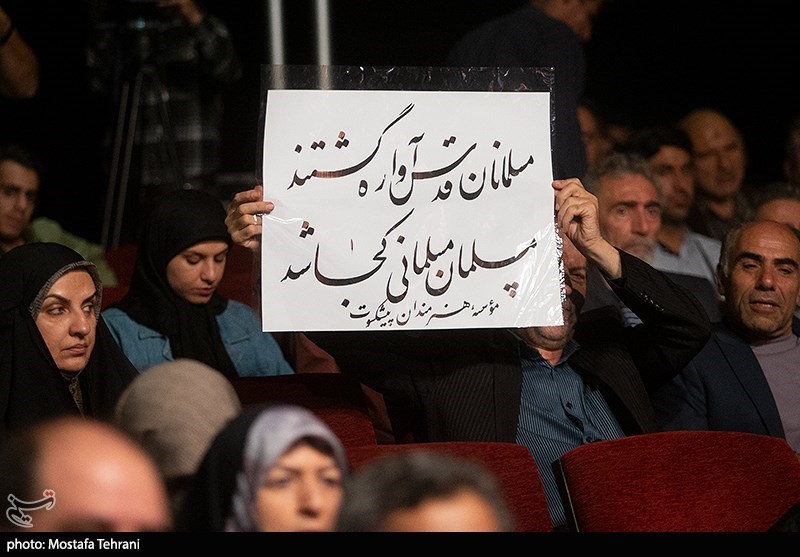 مسلمانان قدس آواره گشتند
مسلمان مسلمانی کجا شد
مؤسسه هنرمندان پیشکسوت
تسنیم
photo: Mostafa Tehrani